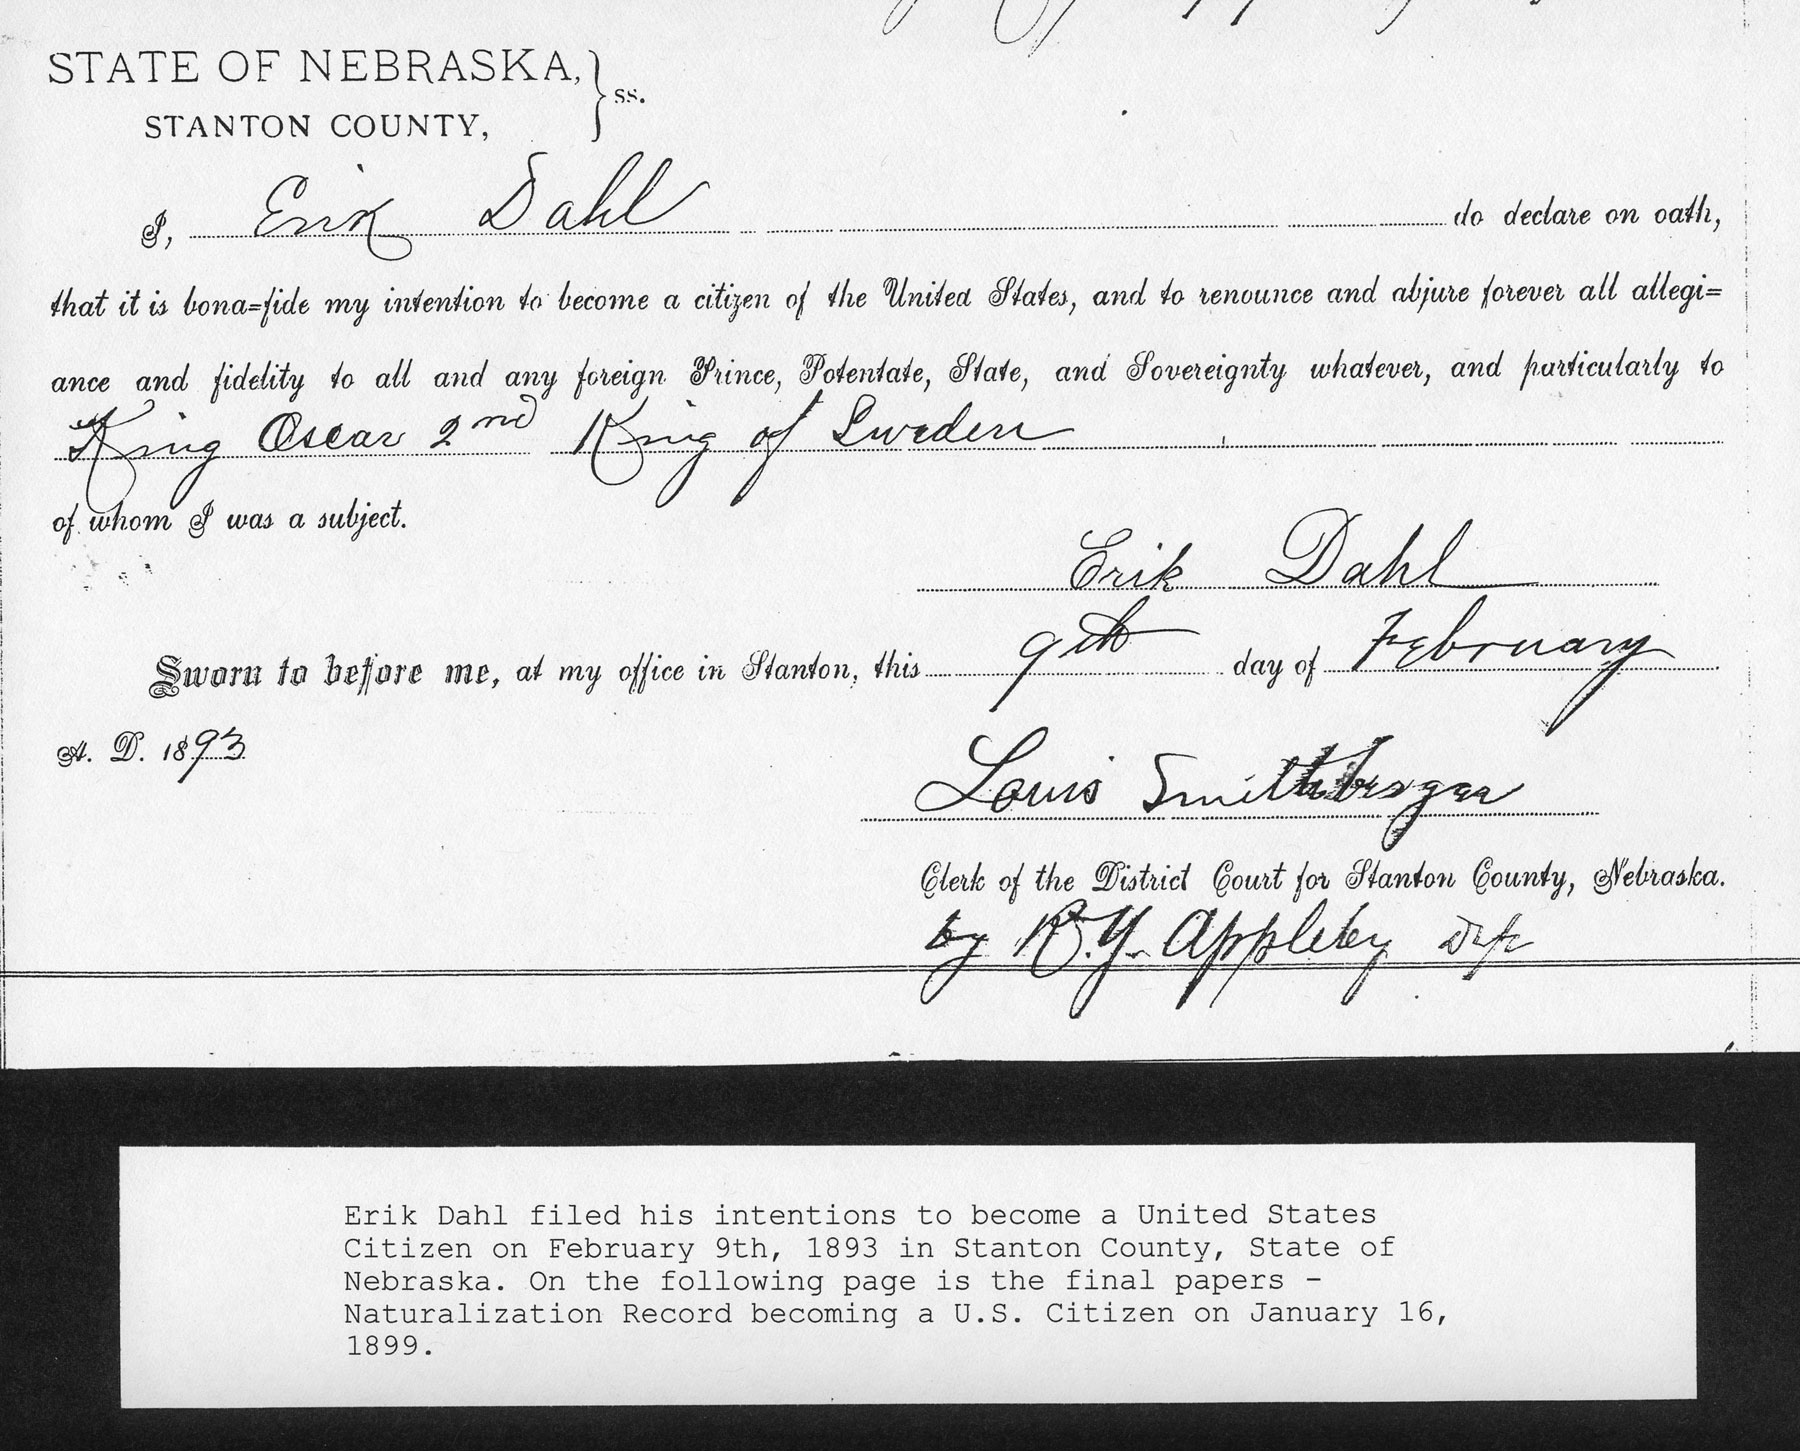 STATE OF NEBRASKA,
STANTON COUNTY,
} ss.
I, Erik Dahl do declare on oath,
that it is bona=fide my intention to become a citizen of the United States, and to renounce and abjure forever all allegi=
ance and fidelity to all and any foreign Prince, Potentate, State, and Sovereignty whatever, and particularly to
King Oscar 2nd King of Sweden
of whom I was a subject.
Erik Dahl
Sworn to before me, at my office in Stanton, this 9th day of February
A. D. 1893
Louis Smithberger
Clerk of the District Court for Stanton County, Nebraska.
by R.Y. Appleby Dep
Erik Dahl filed his intentions to become a United States
Citizen on February 9th, 1893 in Stanton County, State of
Nebraska. On the following page is the final papers -
Naturalization Record becoming a U.S. Citizen on January 16,
1899.